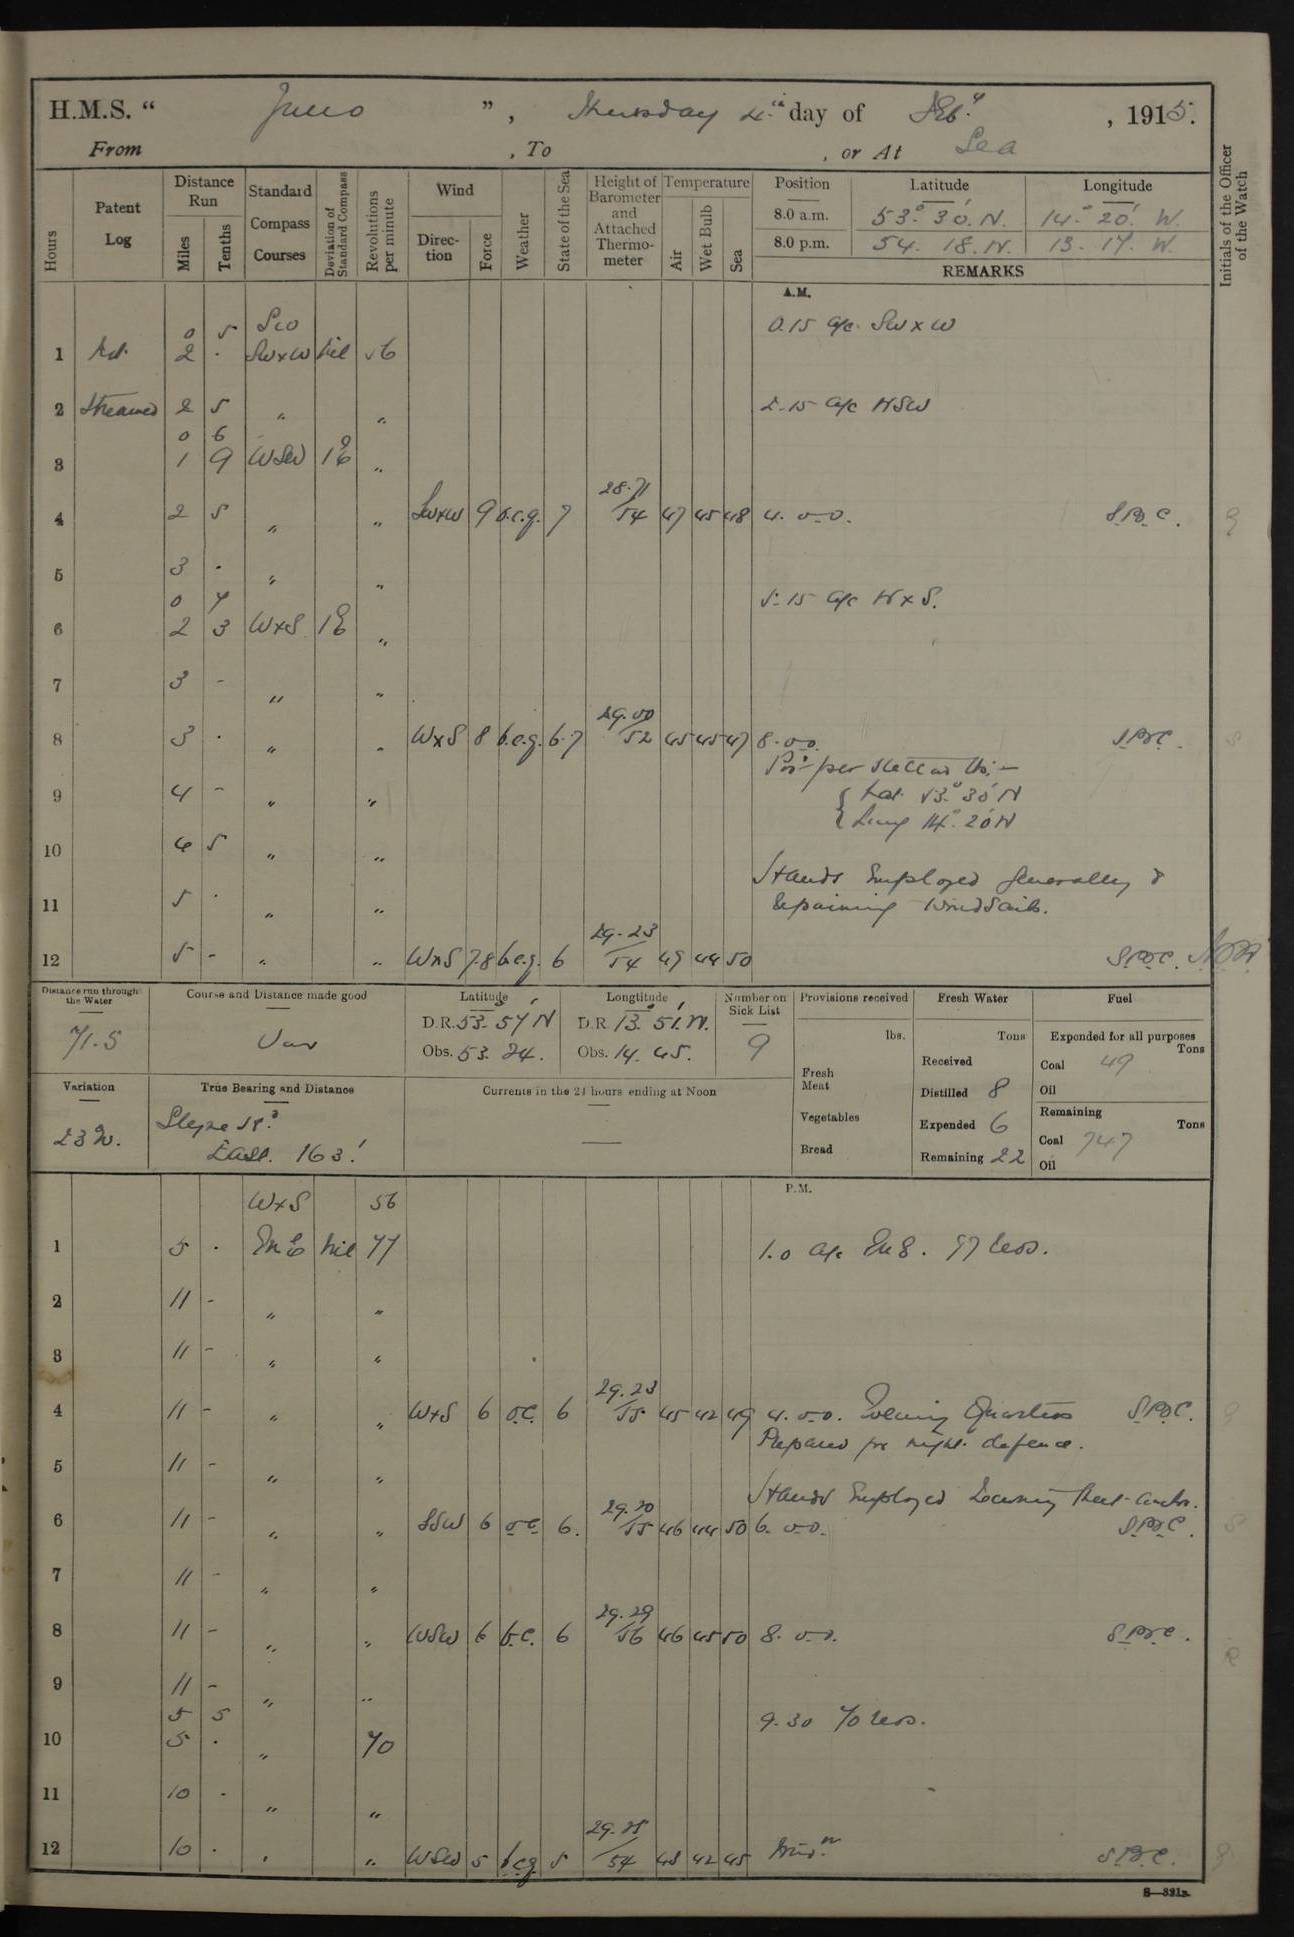 H.M.S. “ Juno ”, Thursday 4th day of Feby, 1915.
From , To , or At Sea
Hours
Patent Log
Distance Run
Miles
Tenths
Standard Compass Courses
Deviation of Standard Compass
Revolutions per minute
Wind
Direction
Force
Weather
State of the Sea
Height of Barometer and Attached Thermometer
Temperature
Air
Wet Bulb
Sea
Position Latitude Longitude
8.0 a.m. 53° 30' N. 14° 20' W.
8.0 p.m. 54. 18. N. 13. 17. W.
REMARKS
Initials of the Officer of the Watch
A.M.
0 5 SW 0.15 a/c SWxW
1 Not 2 · SWxW nil 56
2 Streamed 2 5 " " 2.15 a/c WSW
0 6
3 1 9 WSW 1°E "
4 2 5 " " SWxW 9 b.c.q. 7 28.71/54 47 45 48 4.0
5 3 · " "
0 7 5.15 a/c WxS.
6 2 3 WxS 1°E "
7 3 - " "
8 3 · " " WxS 8 b.c.q. 6.7 29.00/52 45 45 47 8.0
9 4 - " " { Lat. 53° 30' N
{ Long 14° 20' W
10 4 5 " "
Hands Employed generally &
11 5 · " " Repairing Windsails.
12 5 - " " WxS 7.8 b.c.q. 6 29.23/54 49 44 50
Distance run through the Water
71.5
Course and Distance made good
Var
Latitude
D.R. 53. 57 N
Obs. 53. 24.
Longtitude
D.R. 13° 51' W.
Obs. 14. 45.
Number on Sick List
9
Provisions received
lbs.
Fresh Meat
Vegetables
Bread
Fresh Water
Tons
Received
Distilled 8
Expended 6
Remaining 22
Fuel
Expended for all purposes
Tons
Coal 49
Oil
Remaining
Tons
Coal 747
Oil
Variation
23 W.
True Bearing and Distance
Slyne Hd
East. 163'
Currents in the 24 hours ending at Noon
—
P.M.
WxS 56
1 5 · nil 77 1.0 a/c 77 revs.
2 11 - " "
3 11 - " "
4 11 - " " WxS 6 o.c. 6 29.23/55 45 42 49 4.0. Evening Quarters
Prepared for night defence.
5 11 - " "
Hands Employed
6 11 - " " SSW 6 o.c. 6. 29.20/55 46 44 50 6.0
7 11 - " "
8 11 - " " WSW 6 b.c. 6 29.29/56 46 45 50 8.0
9 11 - " "
5 5 9.30 70 revs.
10 5 · " 70
11 10 · " "
12 10 · " " WSW 5 b.c.q. 5 42 45 Midt.
S—321a.